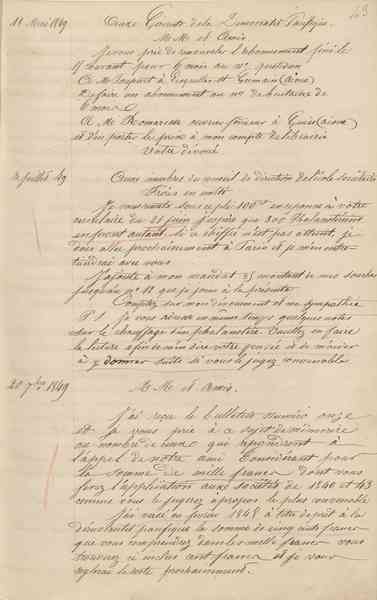 43
11 Mai 1849 Aux Gérants de la Démocratie Pacifique
M M et Amis
Je vous prie de renouveler l'abonnement fini le
15 courant pour 6 mois au nom
à Germain (Aisne)
De faire un abonnement au nom de
6 mois
à Mr ouvrier à Guise (Aisne)
et d'en porter le prix à mon compte de librairie
Votre dévoué
3 Juillet 49 Aux membres du conseil de direction de l'école sociétaire
Frères en
Je vous sous ce pli 100 en réponse à votre
circulaire du 21 juin j'espère que 300 Phalanstériens
en feront autant. si le chiffre n'est pas atteint, je
dois aller prochainement à Paris et je m'en entre-
tiendrai avec vous
J'ajoute à mon mandat 25 montant de mes
jusqu'au n° 12 que je joins à la présente
Comptez sur mon dévouement et ma sympathie
P S je vous adresse en même temps quelques notes
sur le chauffage d'un phalanstère veuillez en faire
la lecture afin de m'en dire votre pensée et de m'aider
à y donner suite si vous le jugez convenable
20 7bre 1849 M M et Amis.
J'ai reçu le bulletin numéro onze
et je vous prie à ce sujet de m'inscrire
au nombre de ceux qui répondront à
l'appel de notre ami Considérant pour
la somme de mille francs dont vous
ferez l'application aux sociétés de 1840 et 43
comme vous le jugerez à propos le plus convenable
J'ai versé en février 1848 à titre de prêt à la
démocratie pacifique la somme de cinq cents francs
que vous comprendrez dans les mille francs vous
trouverez ci inclus cent francs et je vous
réglerai le reste prochainement.